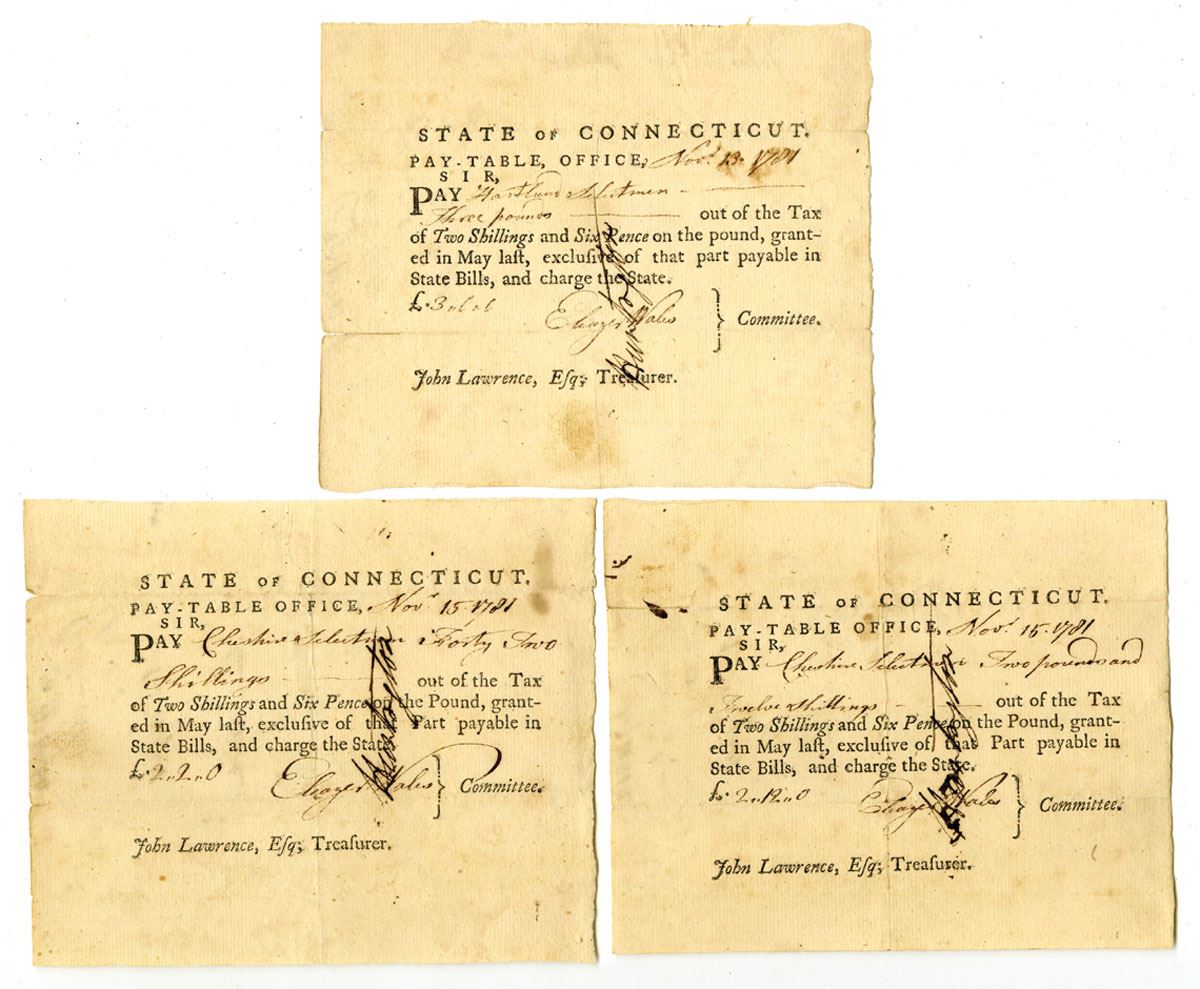 STATE OF CONNECTICUT.
PAY-TABLE, OFFICE, Novr. 13. 1781
SIR,
PAY Hartland Selectmen
Three pounds out of the Tax
of Two Shillings and Six Pence on the pound, grant-
ed in May laſt, excluſive of that part payable in
State Bills, and charge the State.
£.3
Eleazer Wales } Committee.
John Lawrence, Eſq; Treaſurer.
STATE OF CONNECTICUT.
PAY-TABLE OFFICE, Novr. 15. 1781
SIR,
PAY Cheshire Selectmen Forty Two
Shillings out of the Tax
of Two Shillings and Six Pence on the Pound, grant-
ed in May laſt, excluſive of that Part payable in
State Bills, and charge the State.
£.2.,2.,0
Eleazer Wales } Committee.
John Lawrence, Eſq; Treaſurer.
STATE OF CONNECTICUT.
PAY-TABLE OFFICE, Novr. 15. 1781
SIR,
PAY Cheshire Selectmen Two pounds and
Twelve Shillings out of the Tax
of Two Shillings and Six Pence on the Pound, grant-
ed in May laſt, excluſive of that Part payable in
State Bills, and charge the State.
£.2.,12.,0
Eleazer Wales } Committee.
John Lawrence, Eſq; Treaſurer.